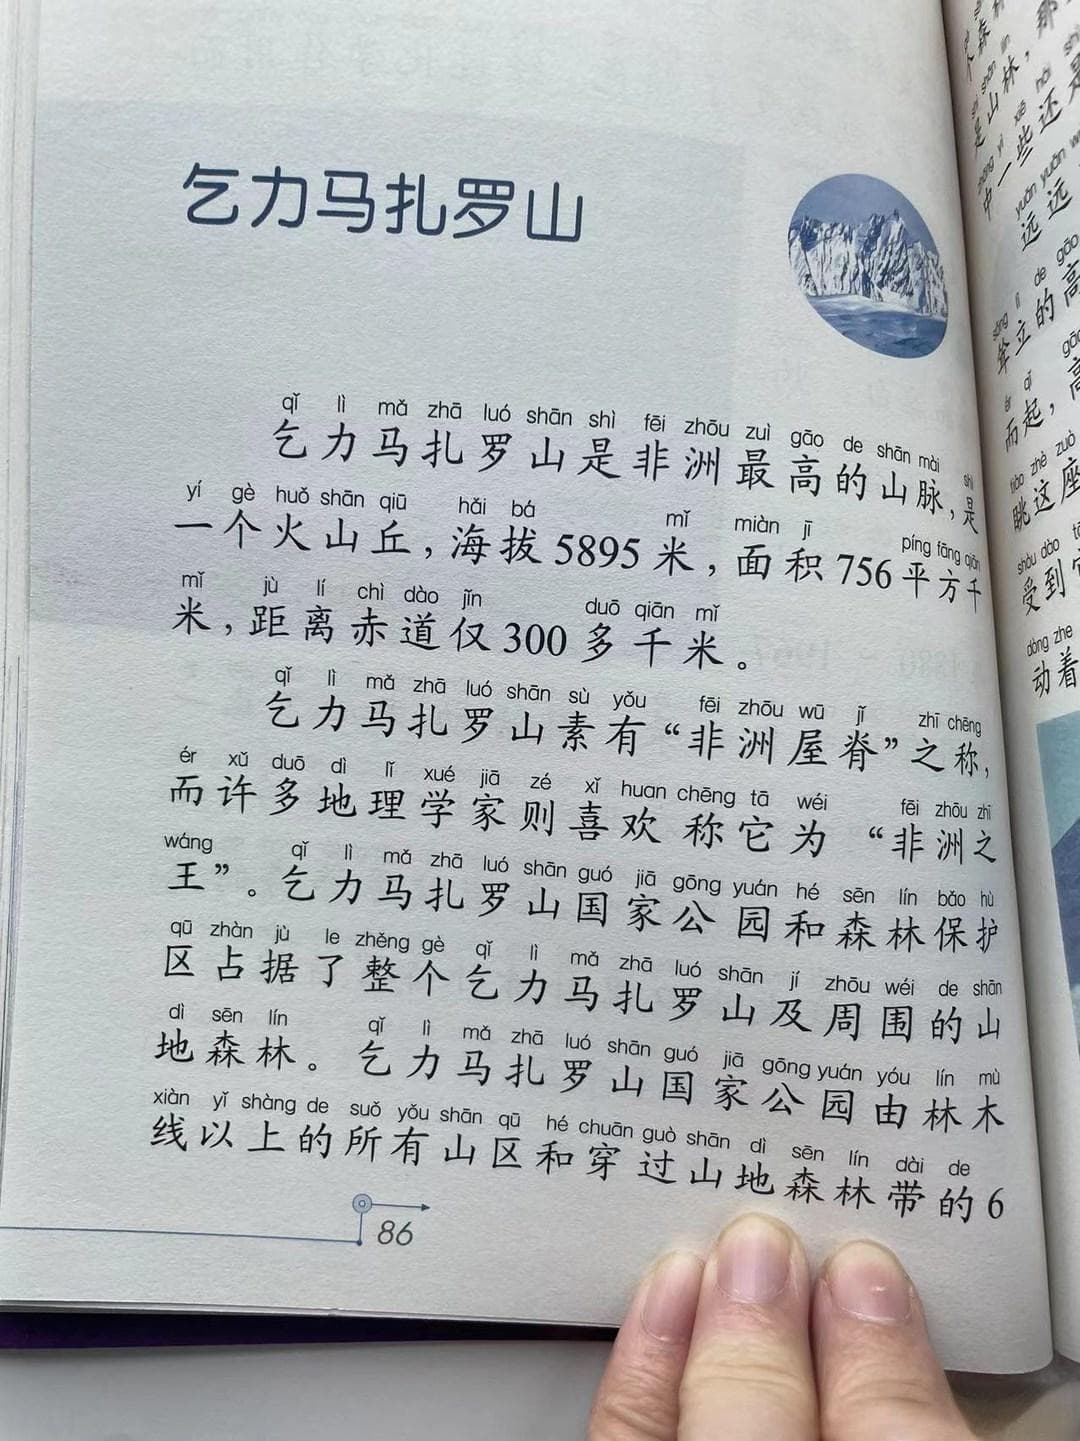 乞力马扎罗山
qǐ lì mǎ zhā luó shān shì fēi zhōu zuì gāo de shān mài shì
乞力马扎罗山是非洲最高的山脉,是
yí gè huǒ shān qiū hǎi bá mǐ miàn jī píng fāng qiān
一个火山丘,海拔5895米,面积756平方千
mǐ jù lí chì dào jǐn duō qiān mǐ
米,距离赤道仅300多千米。
qǐ lì mǎ zhā luó shān sù yǒu fēi zhōu wū jǐ zhī chēng
乞力马扎罗山素有“非洲屋脊”之称,
ér xǔ duō dì lǐ xué jiā zé xǐ huan chēng tā wéi fēi zhōu zhī
而许多地理学家则喜欢称它为“非洲之
wáng qǐ lì mǎ zhā luó shān guó jiā gōng yuán hé sēn lín bǎo hù
王”。乞力马扎罗山国家公园和森林保护
qū zhàn jù le zhěng gè qǐ lì mǎ zhā luó shān jí zhōu wéi de shān
区占据了整个乞力马扎罗山及周围的山
dì sēn lín qǐ lì mǎ zhā luó shān guó jiā gōng yuán yóu lín mù
地森林。乞力马扎罗山国家公园由林木
xiàn yǐ shàng de suǒ yǒu shān qū hé chuān guò shān dì sēn lín dài de
线以上的所有山区和穿过山地森林带的6
86
shì shān lín
是山林,那
zhōng yì xiē hái shì
中一些还是
yuǎn yuǎn
远远
sǒng lì de gāo
耸立的高
ér qǐ gāo
而起,高
tiào zhè zuò
眺这座
shòu dào
受到
dòng zhe
动着